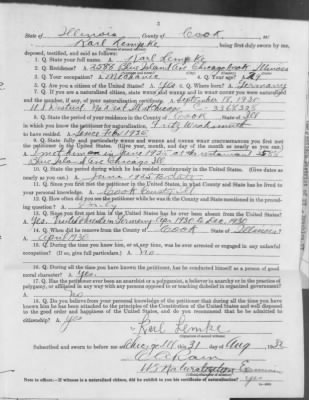 3
State of Illinois County of Cook ss:
Karl Lempke, being first duly sworn by me,
deposed, testified, and said as follows:
1. Q. State your full name. A. Karl Lempke
2. Q. Residence? A. 2586 Blue Island Av. Chicago Cook Illinois
3. Q. Your occupation? A. Mechanic 4. Q. Your age? A.
5. Q. Are you a citizen of the United States? A. Yes 6. Q. Where born? A. Germany
7. Q. If you are a naturalized citizen, state when and where and in what court you were naturalized
and the number, if any, of your naturalization certificate. A. September 18, 1930
U.S. District No. at Chicago C-3268325
8. Q. State the period of your residence in the County of Cook, State of Ill
A. since Feb 1925
9. Q. State fully and particularly when and where and under what circumstances you first met
the petitioner in the United States. (Give year, month, and day of the month as nearly as you can.)
A. I met him in June 1925 at the restaurant 2586
Blue Island Ave Chicago Ill.
10. Q. State the period during which he has resided continuously in the United States. (Give dates as
nearly as you can.) A. June 1925 to date
11. Q. Since you first met the petitioner in the United States, in what County and State has he lived to
your personal knowledge. A. Cook County Ill
12. Q. How often did you see the petitioner while he was in the County and State mentioned in the preceding
question? A. Daily
13. Q. Since you first met him in the United States has he ever been absent from the United States?
A. Yes. Germany Apr 1930 to Dec. 1930
14. Q. When did he move to the County of Cook State of Illinois
A. April 1930
15. Q. During the time you knew him, or at any time, was he ever arrested or engaged in any unlawful
occupation? (If so, give full particulars.) A. No
16. Q. During all the time you have known the petitioner, has he conducted himself as a person of good
moral character? A. Yes.
17. Q. Has the petitioner ever been an anarchist or a polygamist, a believer in anarchy or in the practice of
polygamy, or affiliated in any way with any person opposed to or teaching disbelief in organized government?
A. no
18. Q. Do you believe from your personal knowledge of the petitioner that during all the time you have
known him he has been attached to the principles of the Constitution of the United States and well disposed
to the good order and happiness of the United States, and do you recommend that he be admitted to
citizenship? A. Yes
Karl Lempke
Subscribed and sworn to before me at Chicago Ill on 31 day of Aug
U.S. Naturalization Examiner
Note to officer.—If witness is a naturalized citizen, did he exhibit to you his certificate of naturalization? Yes